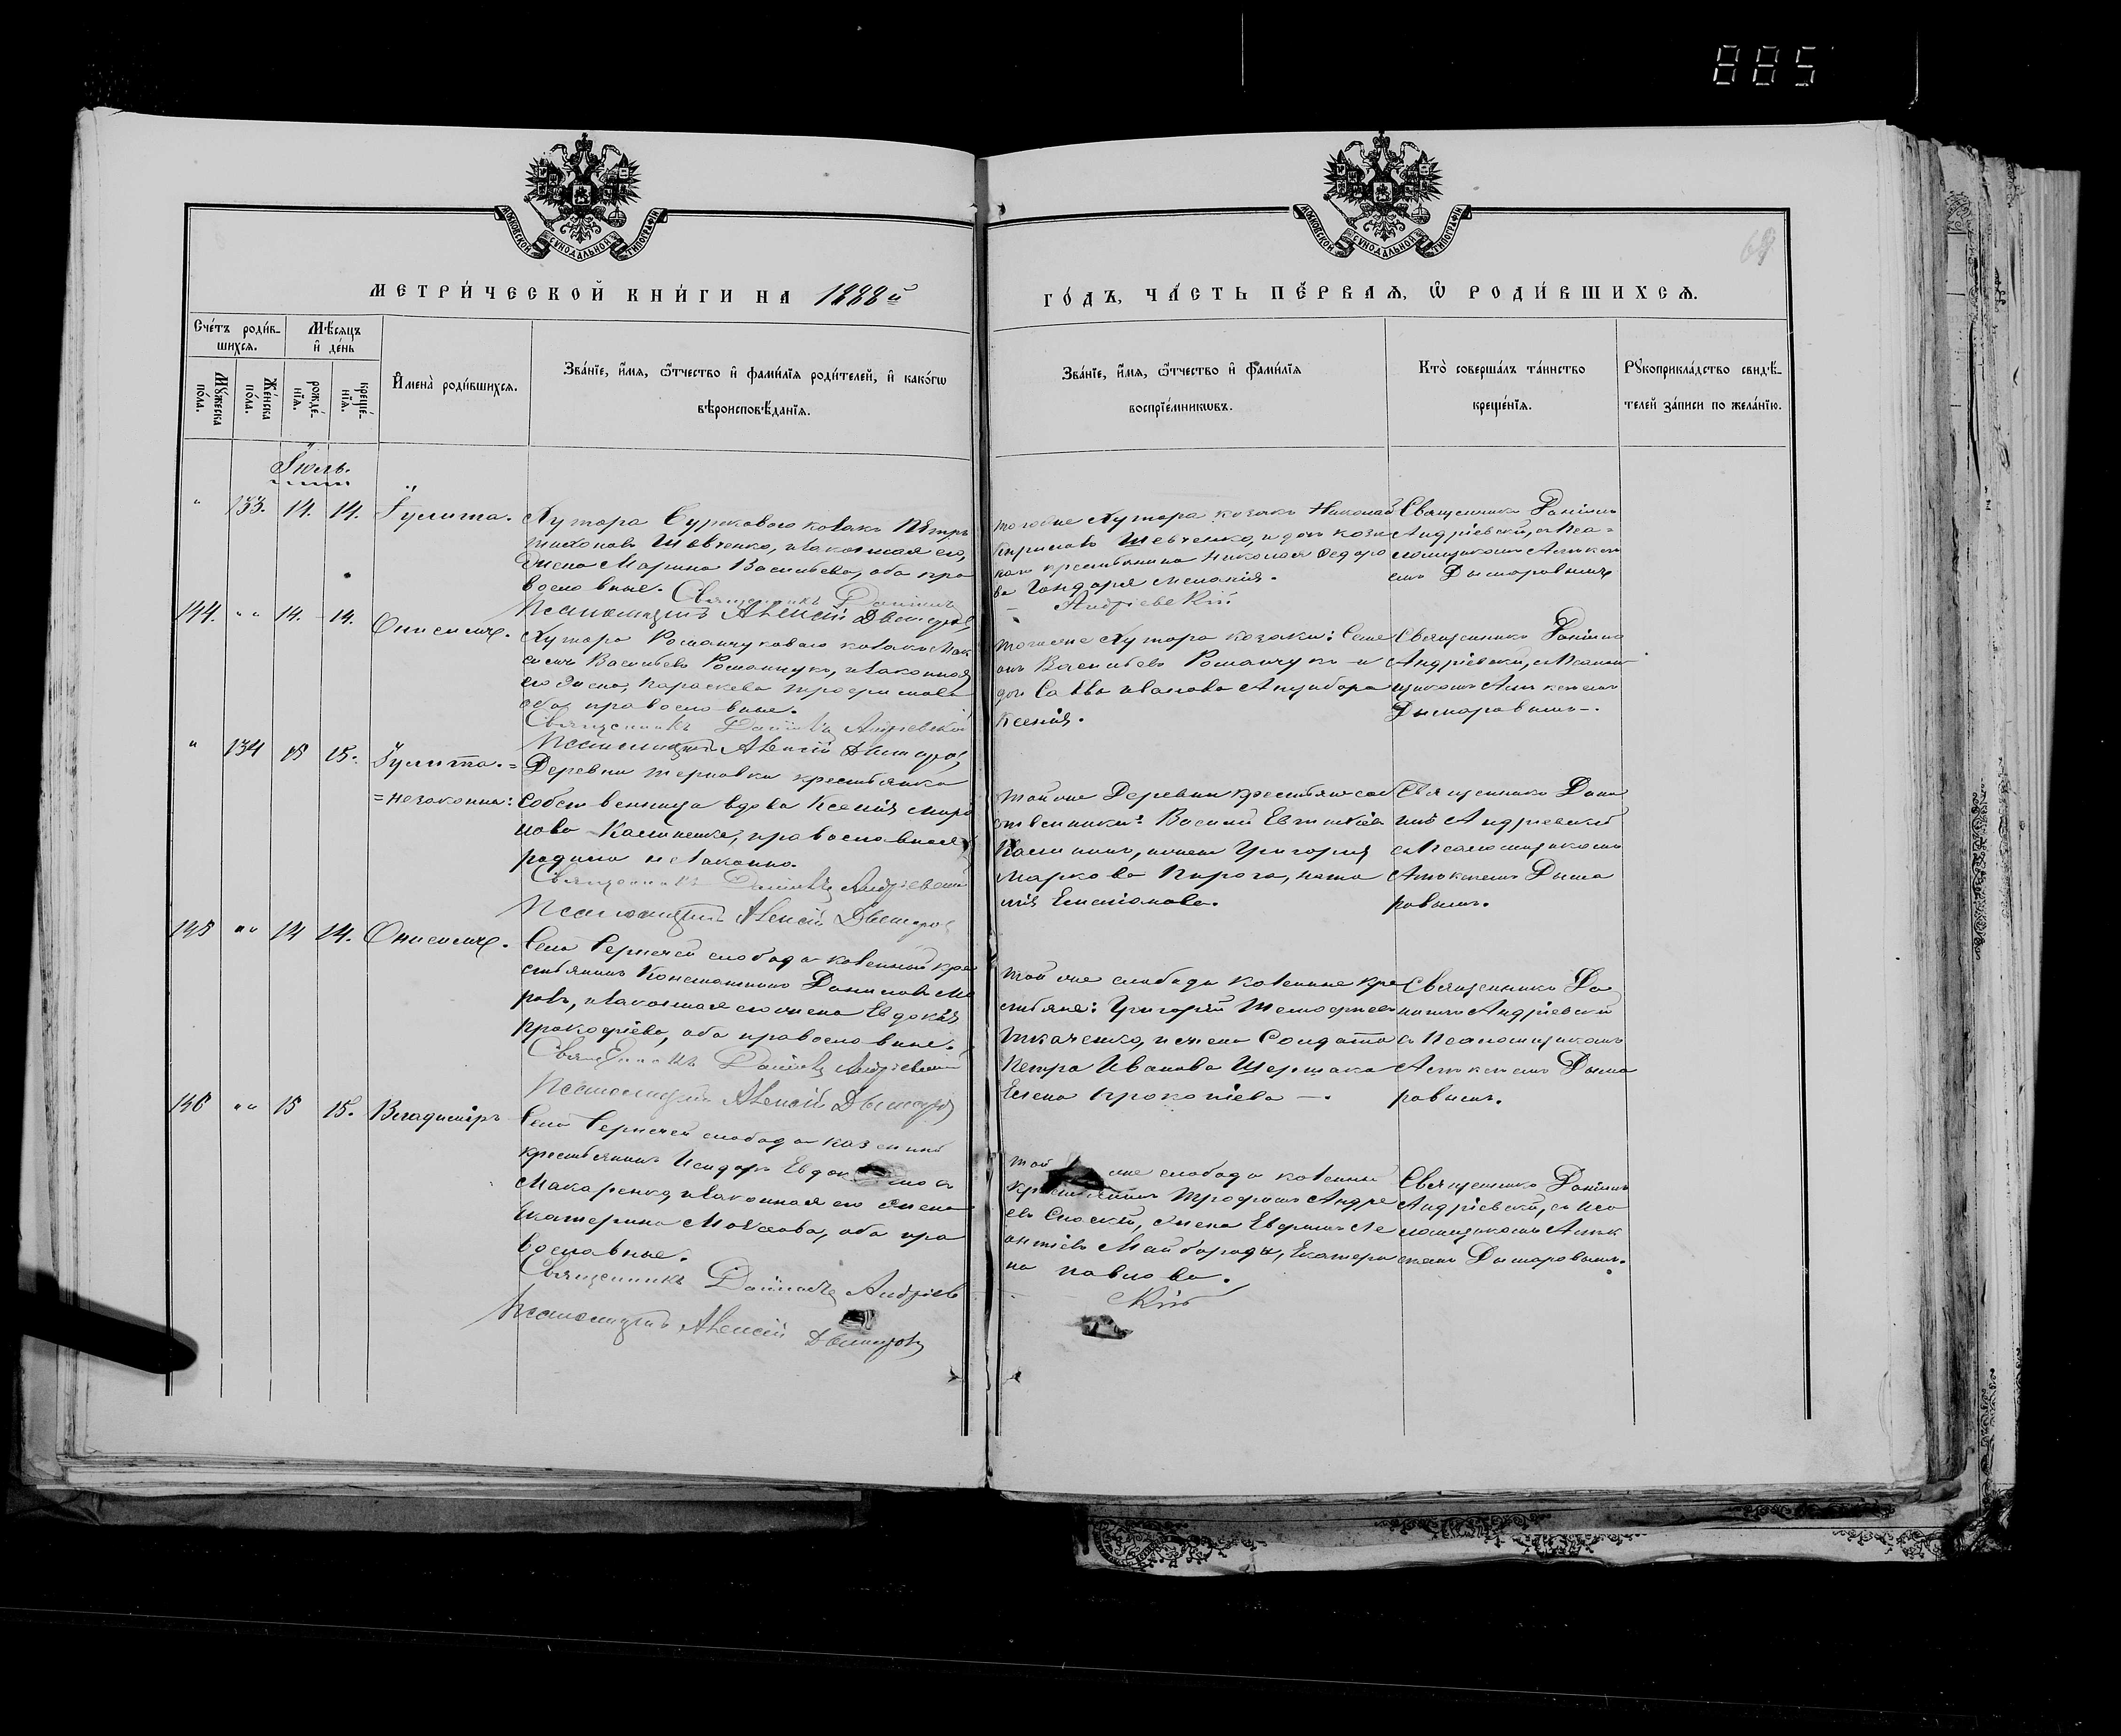 885
МОСКОВСКОЙ СѴНОДАЛЬНОЙ ТИПОГРАФІИ
МОСКОВСКОЙ СѴНОДАЛЬНОЙ ТИПОГРАФІИ
69
МЕТРИ́ЧЕСКОЙ КНИ́ГИ НА 1888й
ГО́ДЪ, ЧА́СТЬ ПЕ́РВАѦ, Ѿ РОДИ́ВШИХСѦ.
Сче́тъ роди́в-
шихсѧ.
Мѣ́сѧцъ
и҆ де́нь
Мꙋ́жеска по́ла.
Же́нска по́ла.
рожде́-нїѧ.
креще́-нїѧ.
И҆мена̀ роди́вшихсѧ.
Зва́нїе, и҆́мѧ, ѻ҆́тчество и҆ фами́лїѧ роди́телей, и҆ како́гѡ
вѣроисповѣ́данїѧ.
Зва́нїе, и҆́мѧ, ѻ҆́тчество и҆ фами́лїѧ
воспрїе́мникѡвъ.
Кто̀ соверша́лъ та́инство
креще́нїѧ.
Рꙋкоприкла́дство свидѣ́-
телей за́писи по жела́нїю.
Іюль.
" 133. 14. 14. Іулита.
Хутора Суркового козакъ Пётръ
Тихоновъ Шевченко, и законная его
жена Марина Васильева, оба пра
вославные. Священникъ Даніилъ
Псаломщикъ Алексій Дымаровъ
тогоже Хутора козакъ Николай
Кириловъ Шевченко, и дочь
крестьянина Николая Федоро
ва Гондаря Меланія.
Андріевскій
Священникъ Даніилъ
Андріевскій, съ Пса=
ломщикомъ Алексѣ
емъ Дымаровымъ
144. " " 14. 14. Онисимъ.
Хутора Романчукового козакъ Мак
симъ Васильевъ Романчукъ, и законная
его жена, Параскева Трофимова
оба православные.
Священникъ Даніилъ Андріевскій
Псаломщикъ Алексій Дымаровъ
тогоже Хутора козаки: Семе
онъ Васильевъ Романчукъ и
дочь Саввы Иванова
Ксенія.
Священникъ Даніилъ
Андріевскій, съ Псалом
щикомъ Алексѣемъ
Дымаровымъ.
" 134 15 15. Іулита.=
=незаконна:
Деревни Терновки крестьянка
собственница вдова Ксенія Миро
нова Калиненко, православная
родила незаконно.
Священникъ Даніилъ Андріевскій
Псаломщикъ Алексій Дымаровъ
той же Деревни крестьяне соб
ственники: Василій
Калинин, жена Григорія
Маркова Пирога, Ната
лія Емельянова.
Священникъ Дани
илъ Андріевскій
съ Псаломщикомъ
Алексѣемъ Дыма
ровымъ.
145 " " 14 14. Онисимъ.
Села слобода козенный кре
стьянинъ Константинъ Даниловъ Мо
розъ, и законная его жена Евдокія
Прокофіева, оба православные.
Священникъ Даніилъ Андріевскій
Псаломщикъ Алексій Дымаровъ
той же слободы козенные кре
стьяне: Григорій
Ткаченко, и жена Солдата
Петра Иванова
Елена Прокопіева.
Священникъ Да
ніилъ Андріевскій
съ Псаломщикомъ
Алексѣемъ Дыма
ровымъ.
146 " " 15 15. Владиміръ
Села слобода казенный
крестьянинъ Исидоръ
Макаренко, и законная его жена
Екатерина Моисеева, оба пра
вославные.
Священникъ Даніилъ Андріев
Псаломщикъ Алексій Дымаровъ
той же слободы козенный
крестьянинъ Трофимъ Андре
евъ жена Ле
онтіева Майбороды, Екатери
на Павлова.
скій
Священникъ Даніилъ
Андріевскій, съ Пса
ломщикомъ Алек
сѣемъ Дымаровымъ.